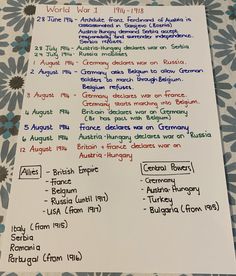 World War 1 1914-1918
28 June 1914 - Archduke Franz Ferdinand of Austria is
assassinated in Sarajevo (Bosnia)
Austria-Hungary demand Serbia accept
responsibility and surrender independence.
Serbia refuses.
28 July 1914 - Austria-Hungary declares war on Serbia
29 July 1914 - Russia mobilises
1 August 1914 - Germany declares war on Russia.
2 August 1914 - Germany asks Belgium to allow German
soldiers to march through Belgium.
Belgium refuses.
3 August 1914 - Germany declares war on France.
Germany starts marching into Belgium.
4 August 1914 - Britain declares war on Germany
(Br has pact with Belgium)
5 August 1914 France declares war on Germany
6 August 1914 Austria-Hungary declares war on Russia
12 August 1914 Britain + France declares war on
Austria-Hungary
Allies - British Empire
- France
- Belgium
- Russia (until 1917)
- USA (from 1917)
Italy (from 1915)
Serbia
Romania
Portugal (from 1916)
Central Powers
- Germany
- Austria-Hungary
- Turkey
- Bulgaria (from 1915)